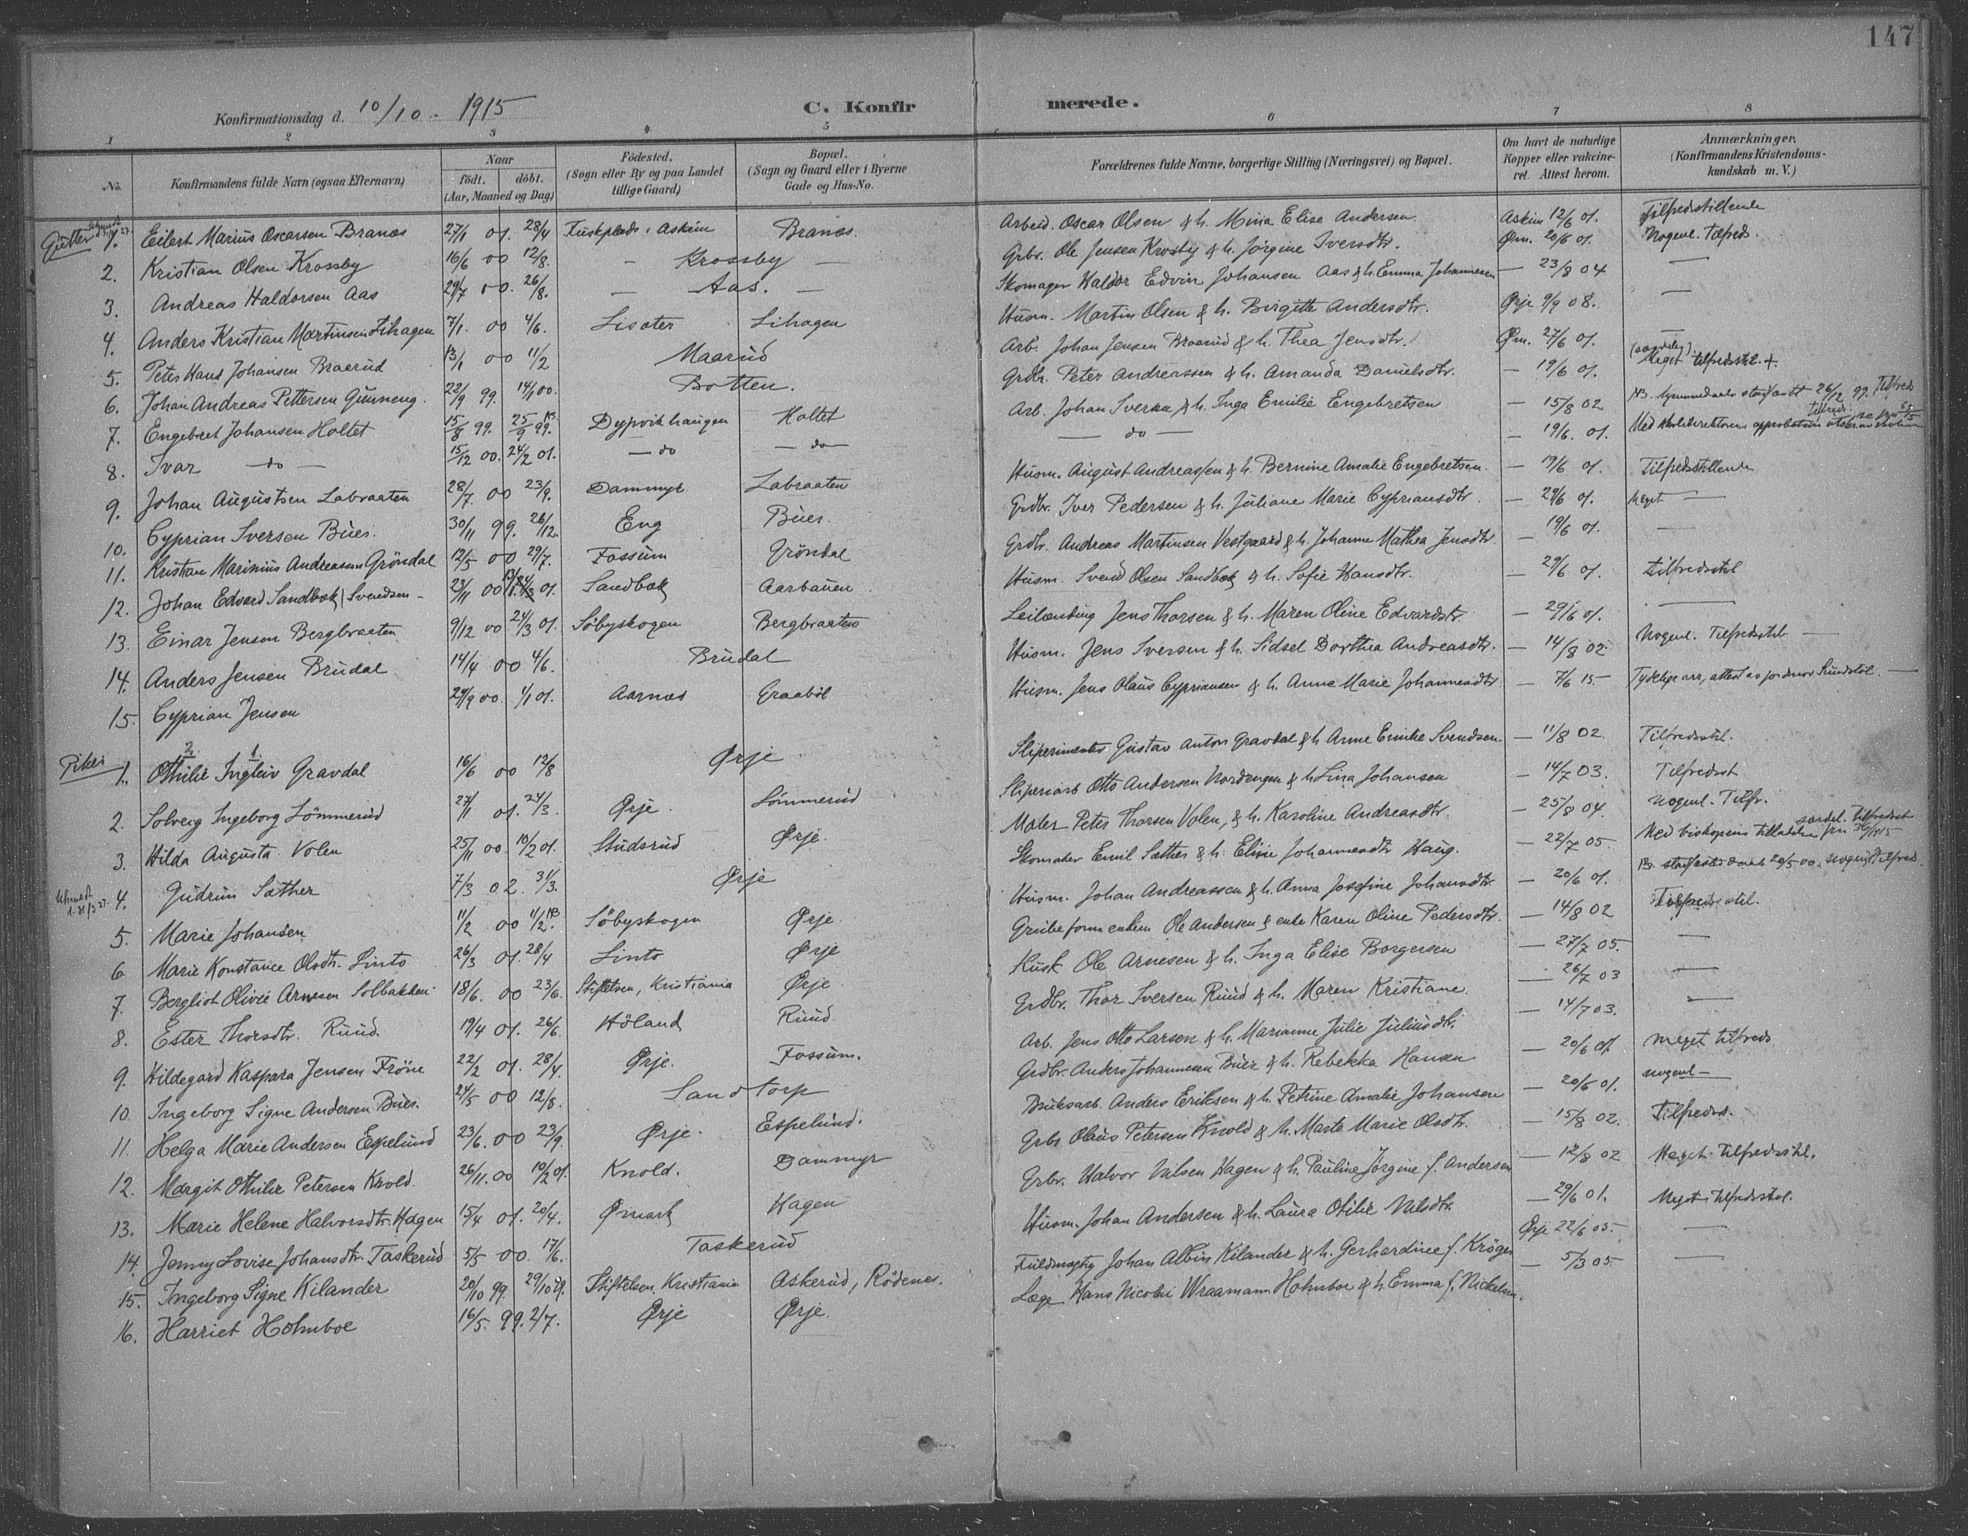 147
Konfirmationsdag d. 10/10 - 1915
C. Konfirmerede.
1 2 3 4 5 6 7 8
No. Konfirmandens fulde Navn (ogsaa Efternavn) Naar födt. döbt. (Aar, Maaned og Dag) Födested. (Sogn eller By og paa Landet tillige Gaard) Bopæl. (Sogn og Gaard eller i Byerne Gade og Hus-No. Forældrenes fulde Navne, borgerlige Stilling (Næringsvei) og Bopæl. Om havt de naturlige Kopper eller vakcineret. Attest herom. Anmærkninger. (Konfirmandens Kristendomskundskab m. V.)
Gutter
1. Eilert Marius Oscarsen Branæs 27/1 01. 28/4 Askim Branæs. Arbeid. Oscar Olsen & h. Mina Elise Andersen Askim 12/6 01. Tilfredsstillende
2. Kristian Olsen Krossby 16/6 00 12/8. — Krossby — Grbr. Ole Jensen Krosby & h. Jörgine Iversdtr. Øm. 20/6 01. Nogenl. Tilfreds.
3. Andreas Haldorsen Aas 29/7 00. 26/8. — Aas. — Skomager Haldor Edvin Johansen Aas & h. Emma Johannesen — 23/8 04 —
4. Anders Kristian Martinsen Lihagen 7/1. 00 4/6. Lisæter Lihagen Husm. Martin Olsen & h. Birgitte Andersdtr. Ørje 9/9 08. —
5. Peter Hans Johansen Braerud 13/1 00 11/2 Maarud Arb. Johan Jensen Braarud & h. Thea Jensdtr. Øm. 27/6 01. —
6. Johan Andreas Pettersen Gunneng. 22/9 99. 14/1 00. Botten. Grdbr. Peter Andreassen & h. Amanda Danielsdtr. — 19/6 01. Meget tilfredsstil. +
7. Engebret Johansen Holtet 15/8 99. 25/9 99. Dypvikhaugen Holtet Arb. Johan Iversen & h. Inga Emilie Engebretsen — 15/8 02 NB. 26/12 99. Tilfreds
8. Ivar — do — 15/12 00. 24/2 01. — do — do — — do — — 19/6. 01. Med Skoledirektörens approbation
9. Johan Augustsen Labraaten 28/7. 00 23/9. Dammyr Labraaten Husm. August Andreassen & h. Bernine Amalie Engebretsen. — 19/6 01. Tilfredsstillende
10. Cyprian Iversen Bues. 30/11 99. 26/12. Eng Bues. Grdbr. Iver Pedersen & h. Juliane Marie Cypriansdtr. — 29/6 01. Meget —
11. Kristian Marinius Andreasen Gröndal 12/5 00 29/7. Fossum Gröndal Grdbr. Andreas Martinsen Vestgaard & h. Johanne Mathea Jensdtr. — 19/6 01. —
12. Johan Edvard Sandbæk (Svendsen - 23/11 00 24/3 01. Sandbæk Aarbauen Husm. Svend Olsen Sandbæk & h. Sofie Hansdtr. — 29/6 01. tilfredsstil
13. Einar Jensen Bergbraaten 9/12 00 24/3 01. Söbyskogen Bergbraaten Leilænding Jens Thorsen & h. Maren Oline Edvardsdtr. — 29/6 01. —
14. Anders Jensen Brudal 14/4 00 4/6. Brudal Husm. Jens Iversen & h. Sidsel Dorthea Andreasdtr. — 14/8 02 Nogenl. Tilfredsstil —
15. Cyprian Jensen 29/9 00. 1/1 01. Aarnæs Graaböl Husm. Jens Olaus Cypriansen & h. Anne Marie Johannesdtr. — 7/6 15 Tydelige arr, attest av jordmor Sundstöl. —
Piker
1. Othilie Ingleiv Gravdal 16/6 00 12/8 Ørje Slipermester Gustav Anton Gravdal & h. Anne Emilie Svendsen — 11/8 02. Tilfredsstil.
2. Solveig Ingeborg Lömmerud 27/1 01. 24/3. Ørje. Lömmerud Sliperiarb Otto Andersen Nordengen & h. Lina Johansen — 14/7 03. Tilfredsst
3. Hilda Augusta Volen 25/11 00 10/2 01. Studsrud Ørje. Maler Peter Thorsen Volen, & h. Karoline Andreasdtr. — 25/8 04. Nogenl. Tilfr.
4. Gudrun Sæther 7/3 02. 31/3. Ørje Skomaker Emil Sæther & h. Eline Johannesdtr Haug. — 22/7 05. Med biskopens tilladelse
5. Marie Johansen 11/2 00 11/2. Söbyskogen Ørje. Husm. Johan Andreassen & h. Anna Josefine Johansdtr. — 20/6 01.
6. Marie Konstance Olsdtr. Linto 26/3 01. 28/4 Linto Ørje Grubeformenkem Ole Andersen & enke Karen Oline Pedersdtr. — 14/8 02 Tilfredsstil.
7. Bergliot Olivie Arnesen Solbakken 18/6. 00 23/6. Stiftelsen, Kristiania Ørje. Kusk Ole Arnesen & h. Inga Elise Borgersen — 27/7 05. —
8. Ester Thorsdtr. Ruud. 19/4 01. 26/6. Höland Ruud. Grdbr. Thor Iversen Ruud & h. Maren Kristiane. — 26/7 03 —
9. Hildegard Kaspara Jensen Fröne 22/2 01. 28/4. Ørje. Fossum. Arb. Jens Otto Larsen & h. Marianne Julie Juliusdtr. — 14/7 03. —
10. Ingeborg Signe Andersen Bues. 24/5 00 12/8. Sandtorp Grdbr. Anders Johannesen Buer & h. Rebekka Hansen — 20/6 01. Meget tilfreds
11. Helga Marie Andersen Espelund 23/6. 00 23/9. Ørje. Espelund. Bruksarb. Anders Eriksen & h. Petrine Amalie Johansen — 20/6 01. Nogenl —
12. Margit Othilie Petersen Knold. 26/11. 00 10/2 01. Knold. Dammyr Grbr Olaus Petersen Knold & h. Marte Marie Olsdtr. — 15/8 02. Tilfredss.
13. Marie Helene Halvorsdtr. Hagen 15/4 01. 20/4. Ømark Hagen Grbr. Halvor Nilsen Hagen & h. Pauline Jörgine f. Andersen — 12/8 02 Meget Tilfredsstil.
14. Jenny Lovise Johansdtr. Taskerud 5/5 00 17/6. Taskerud Husm. Johan Andersen & h. Laura Otilie Nilsdtr. — 29/6 01. Meget Tilfredsstil.
15. Ingeborg Signe Kilander 20/10 99. 29/10 99. Stiftelsen Kristiania Askerud, Rödenes. Fuldmægtig Johan Albin Kilander & h. Gerhardine f. Kröger Ørje 22/6 05. —
16. Harriet Holmboe 16/5. 99. 2/7. Ørje Ørje. Læge Hans Nicolai Wraamann Holmboe & h. Emma f. Nickelsen. — 5/3 05 —